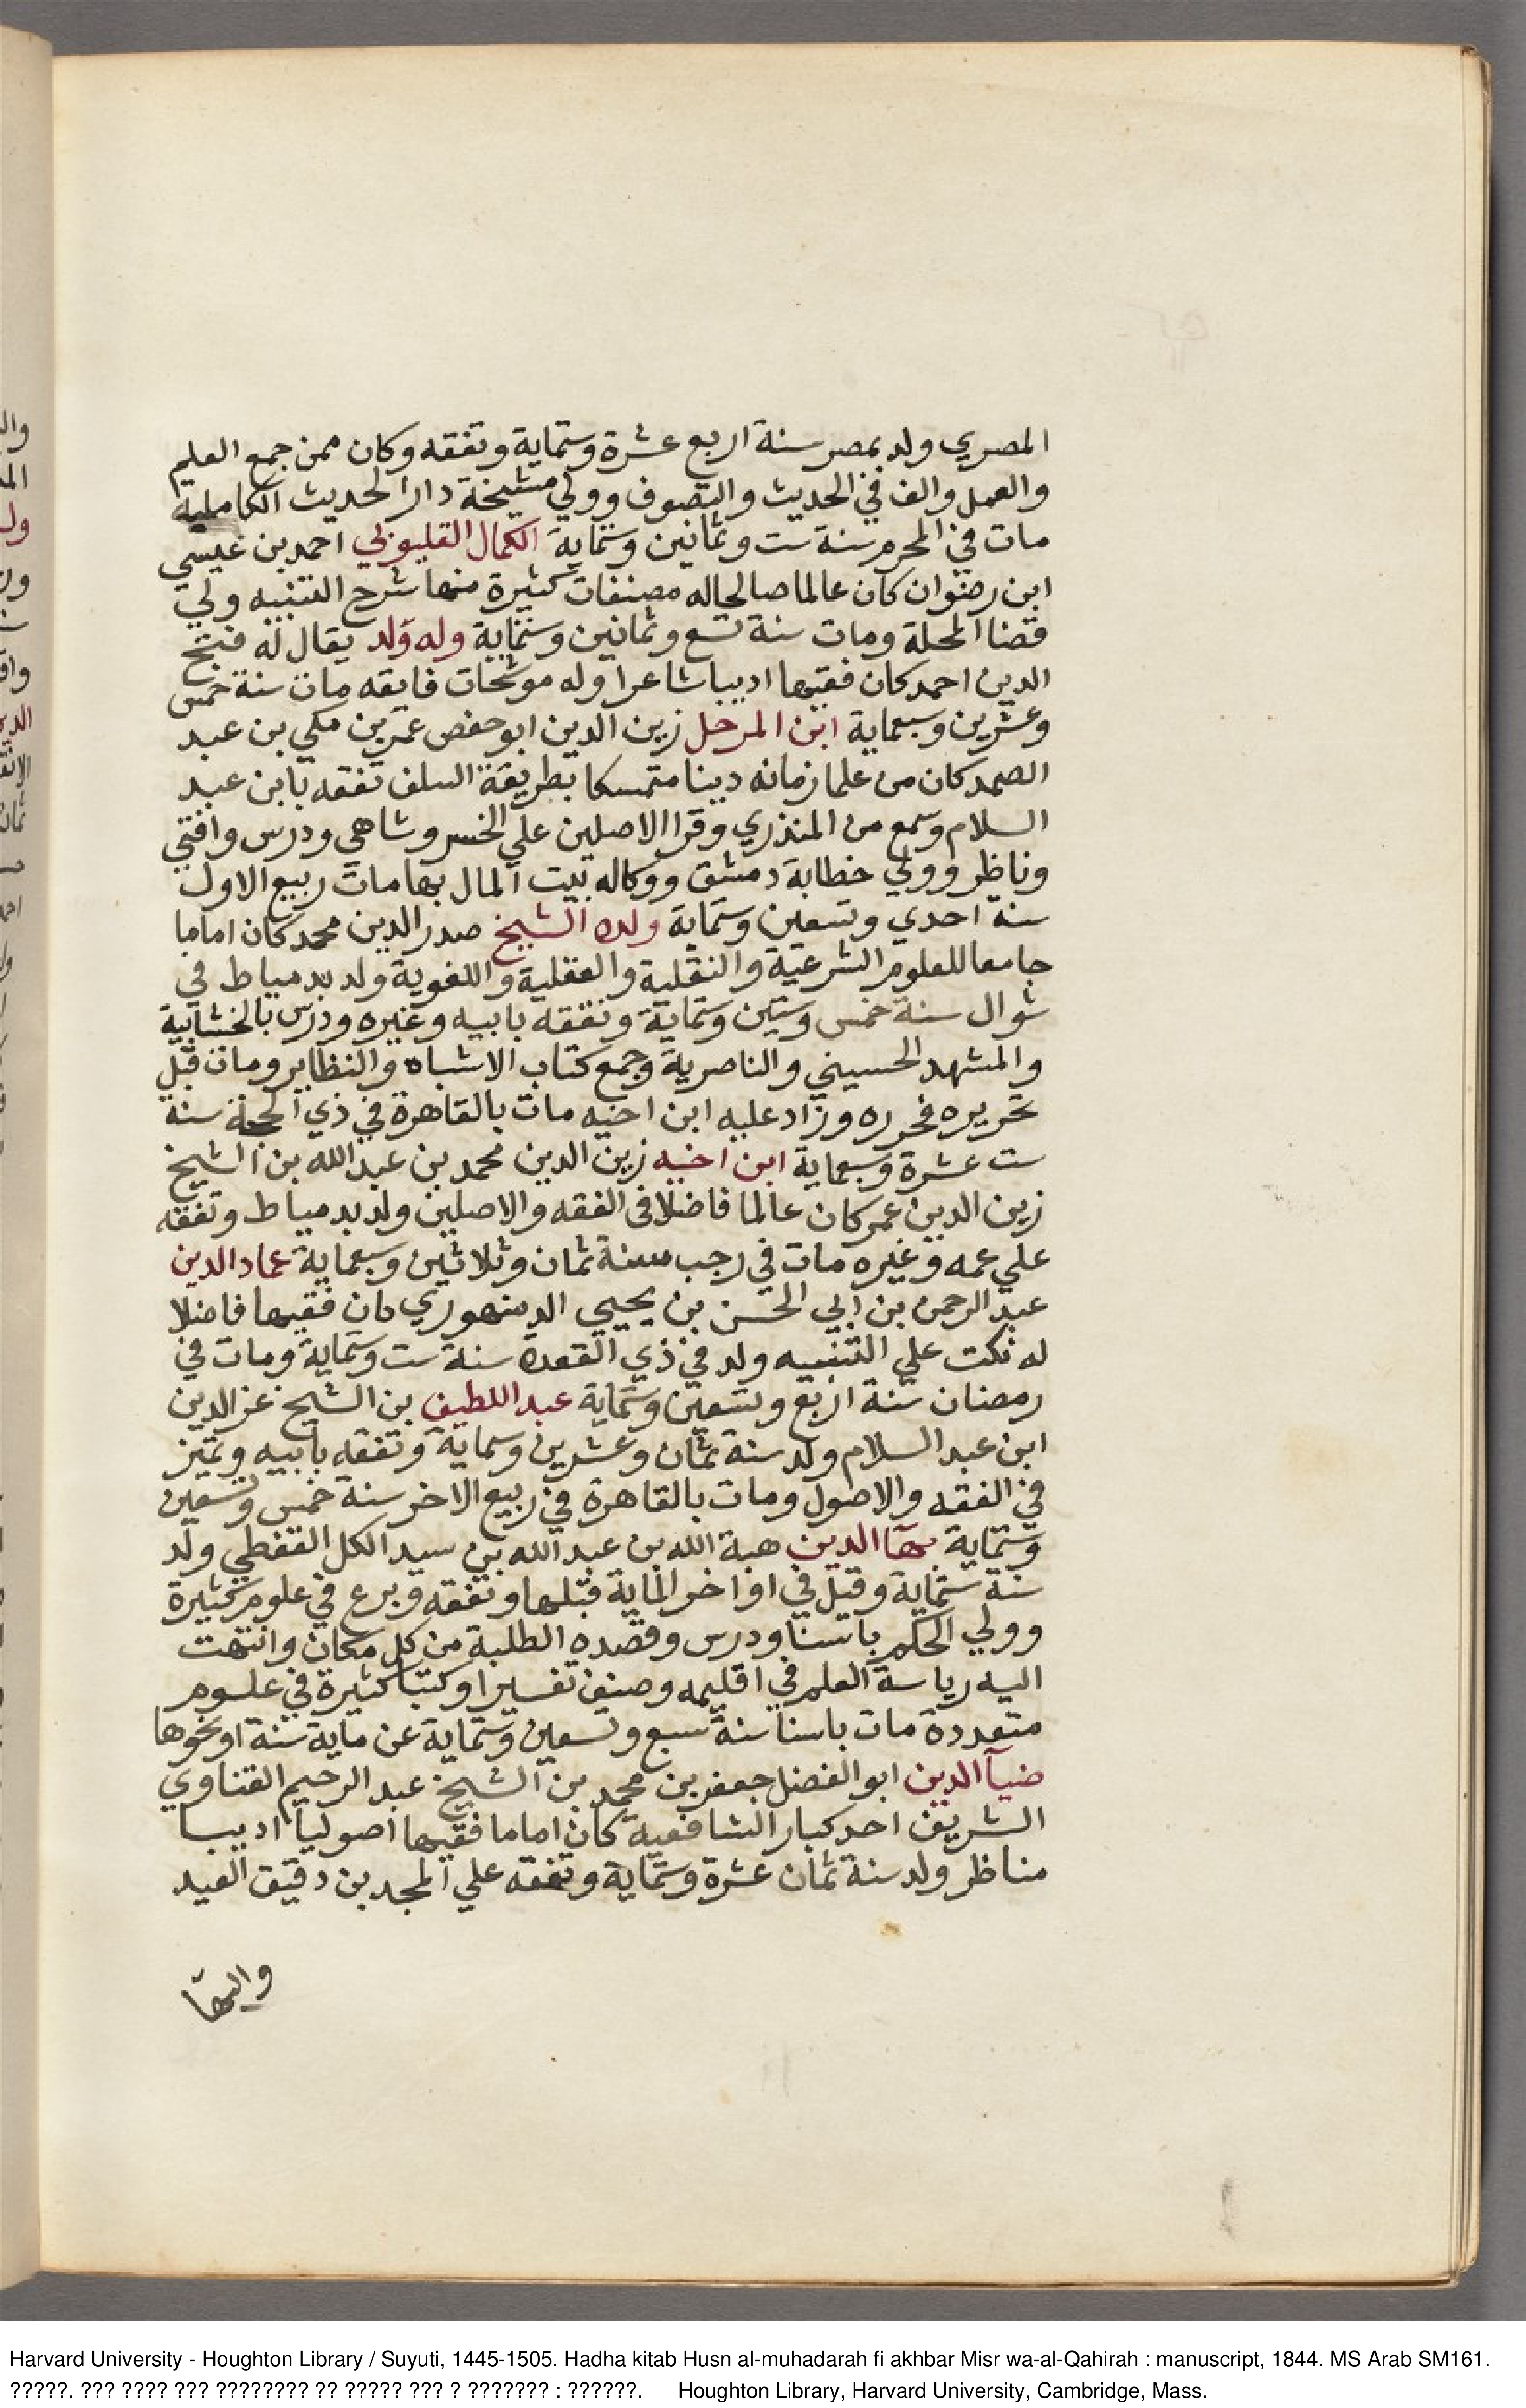 المصري ولد بمصر سنة اربع عشرة وستماية وتفقه وكان ممن جمع العلم
والعمل والف في الحديث والتصوف وولي مشيخة دار الحديث الكاملية
مات في المحرم سنة ست وثمانين وستماية الكمال القليوبي احمد بن عيسي
ابن رضوان كان عالما صالحا له مصنفات كثيرة منها شرح التنبيه ولي
قضا المحلة ومات سنة تسع وثمانين وستماية وله ولد يقال له فتح
الدين احمد كان فقيها اديبا شاعرا وله موشحات فايقه مات سنة خمس
وعشرين وسبعماية ابن المرحل زين الدين ابو حفص عمر بن مكي بن عبد
الصمد كان من علما زمانه دينا متمسكا بطريقة السلف تفقه بابن عبد
السلام وسمع من المنذري وقرا الاصلين علي الخسروشاهي ودرس وافتي
وناظر وولي خطابة دمشق ووكاله بيت المال بها مات ربيع الاول
سنة احدي وتسعين وستماية ولده الشيخ صدر الدين محمد كان اماما
جامعا للعلوم الشرعية والنقلية والعقلية واللغوية ولد بدمياط في
شوال سنة خمس وستين وستماية وتفقه بابيه وغيره ودرس بالخشابية
والمشهد الحسيني والناصرية وجمع كتاب الاشباه والنظاير ومات قبل
تحريره فحرره وزاد عليه ابن اخيه مات بالقاهرة في ذي الحجة سنة
ست عشرة وسبعماية ابن اخيه زين الدين محمد بن عبد الله بن الشيخ
زين الدين عمر كان عالما فاضلا في الفقه والاصلين ولد بدمياط وتفقه
علي عمه وغيره مات في رجب سنة ثمان وثلاثين وسبعماية عماد الدين
عبد الرحمن بن ابي الحسن بن يحيي الدمنهوري كان فقيها فاضلا
له نكت علي التنبيه ولد في ذي القعدة سنة ست وستماية ومات في
رمضان سنة اربع وتسعين وستماية عبد اللطيف بن الشيخ عز الدين
ابن عبد السلام ولد سنة ثمان وعشرين وستماية وتفقه بابيه وتميز
في الفقه والاصول ومات بالقاهرة في ربيع الاخر سنة خمس وتسعين
وستماية بهآ الدين هبة الله بن عبد الله بن سيد الكل القفطي ولد
سنة ستماية وقيل في اواخر الماية قبلها وتفقه وبرع في علوم كثيرة
وولي الحكم باسنا ودرس وقصده الطلبة من كل مكان وانتهت
اليه رياسة العلم في اقليمه وصنف تفسيرا وكتبا كثيرة في علوم
متعددة مات باسنا سنة سبع وتسعين وستماية عن ماية سنة او نحوها
ضيآ الدين ابو الفضل جعفر بن محمد بن الشيخ عبد الرحيم القناوي
الشريف احد كبار الشافعية كان اماما فقيها اصوليا اديبا
مناظر ولد سنة ثمان عشرة وستماية وتفقه علي المجد بن دقيق العيد
والبها
Harvard University - Houghton Library / Suyuti, 1445-1505. Hadha kitab Husn al-muhadarah fi akhbar Misr wa-al-Qahirah : manuscript, 1844. MS Arab SM161.
?????. ??? ???? ??? ???????? ?? ????? ??? ? ??????? : ??????. Houghton Library, Harvard University, Cambridge, Mass.